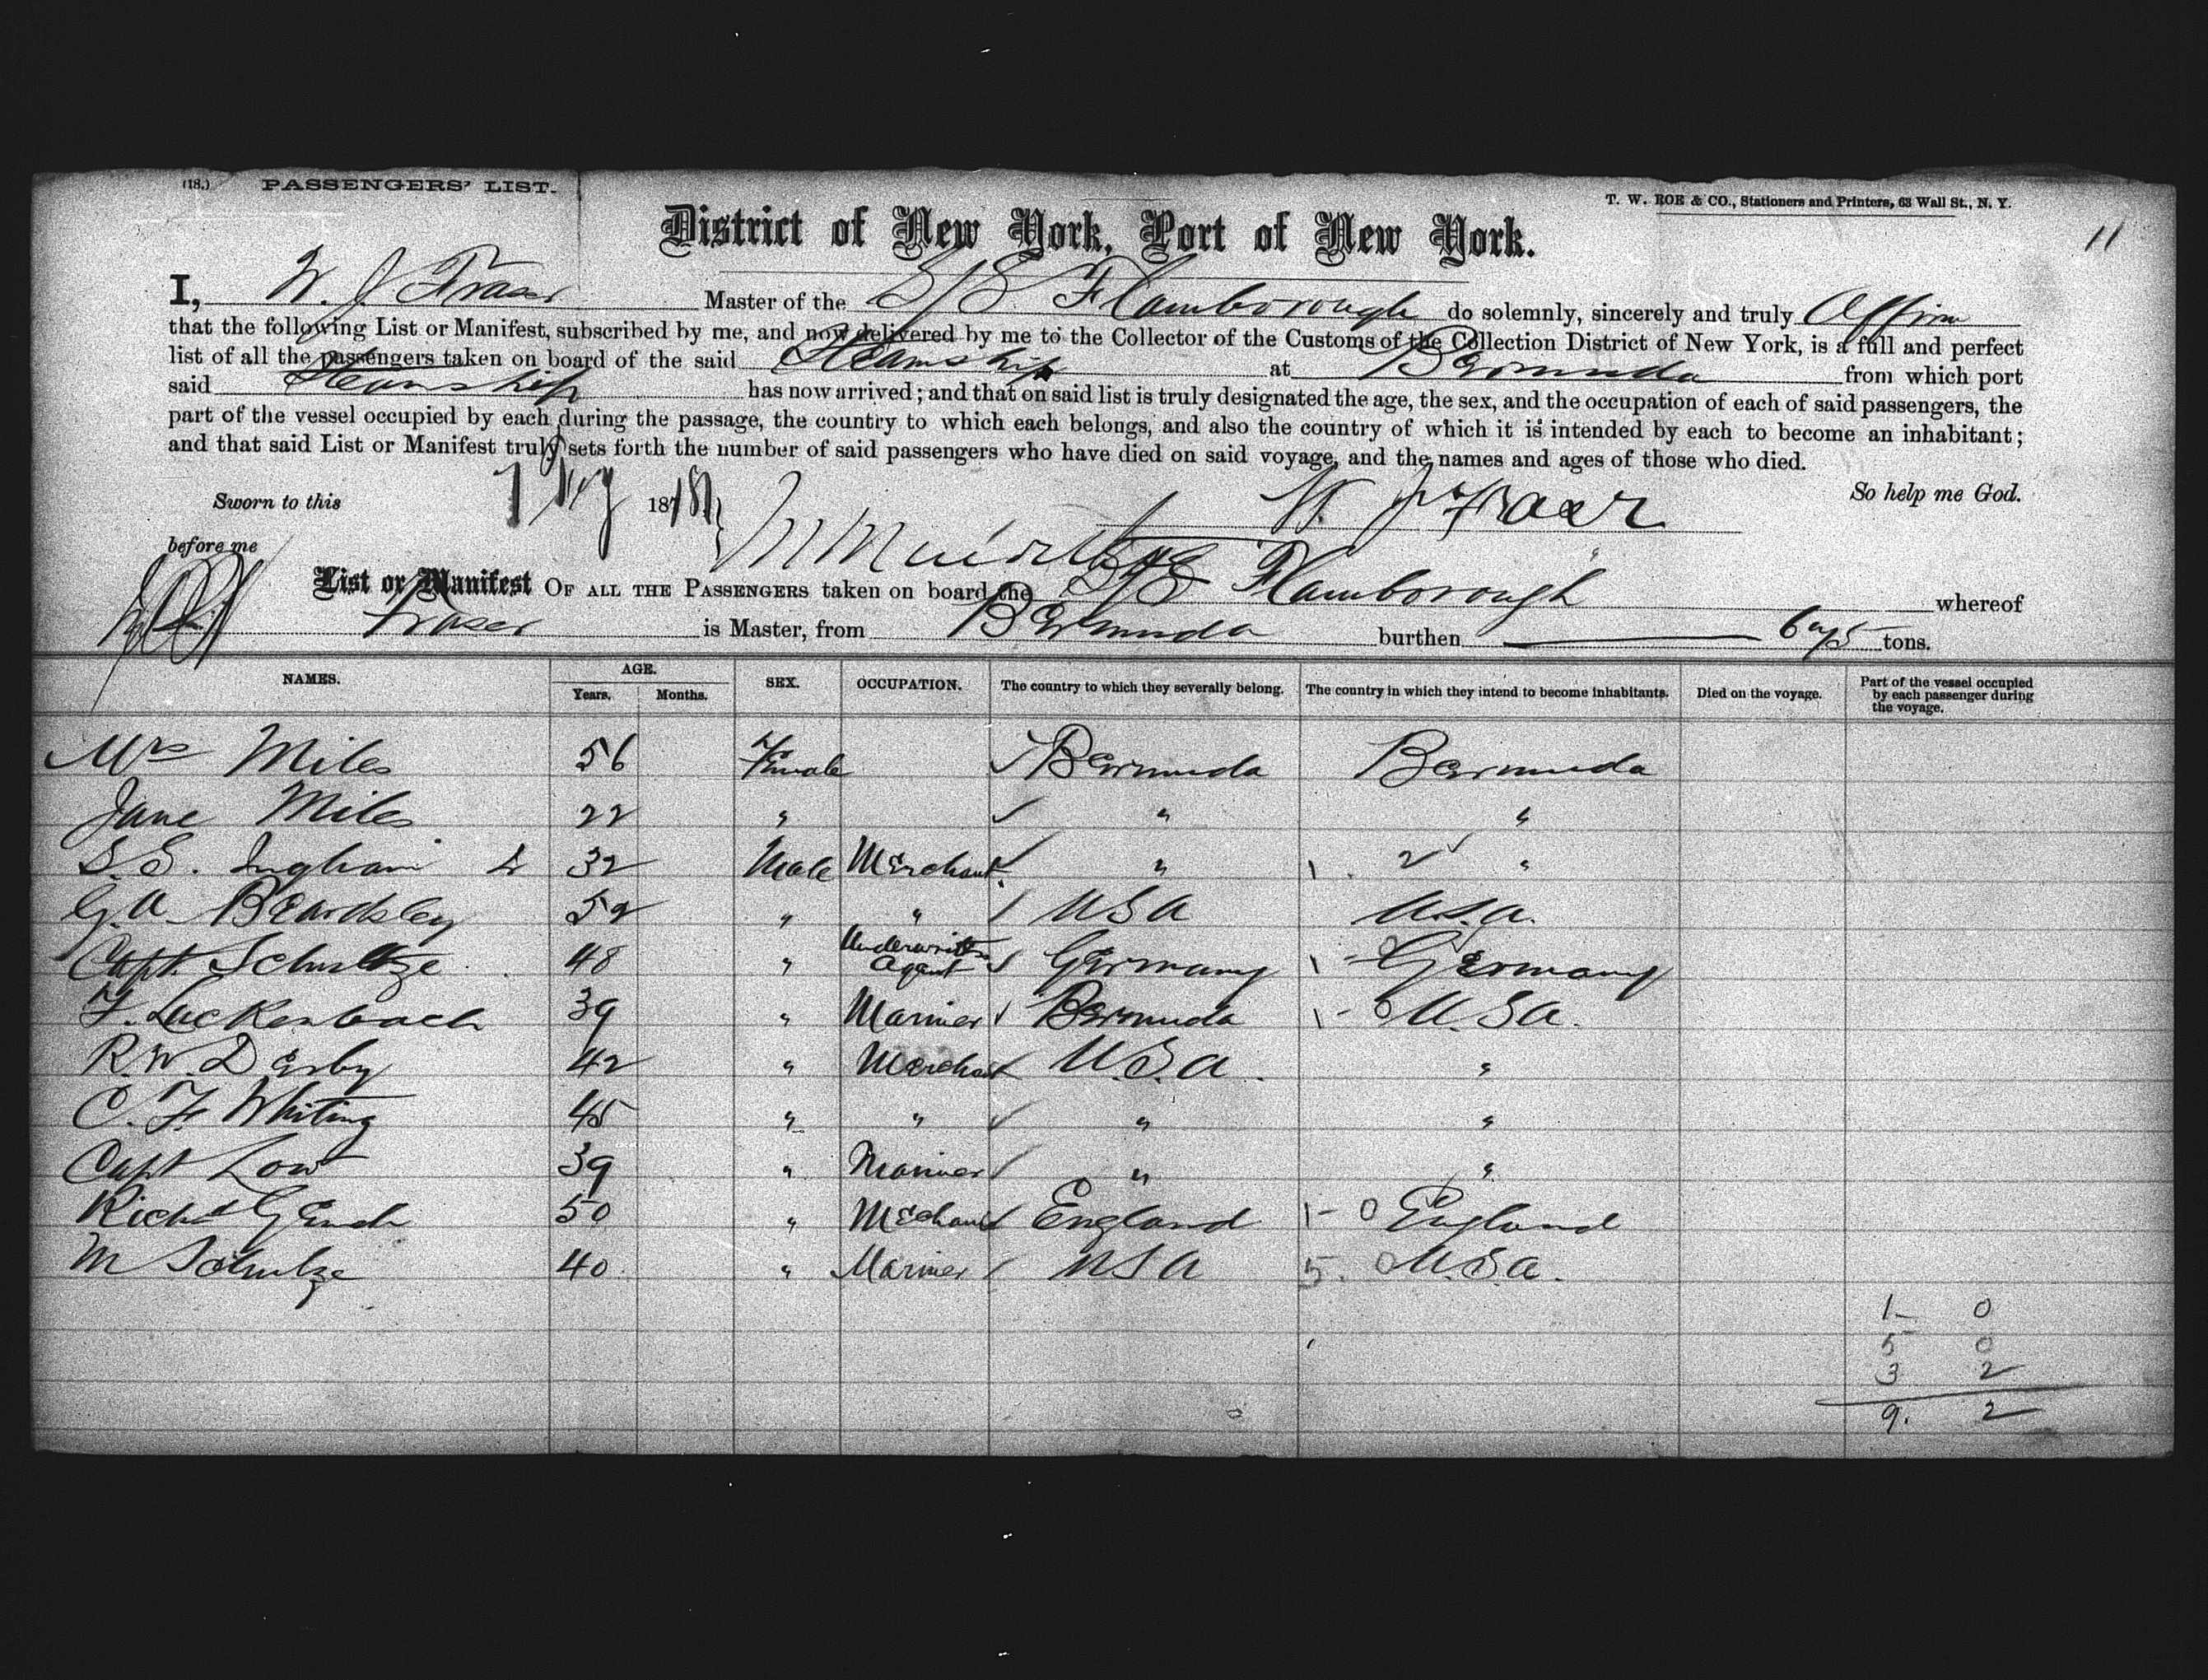 (18.) PASSENGERS' LIST.
T. W. ROE & CO., Stationers and Printers, 63 Wall St., N. Y.
11
District of New York, Port of New York.
I, W. J. Fraser Master of the S/S Flamborough do solemnly, sincerely and truly Affirm
that the following List or Manifest, subscribed by me, and now delivered by me to the Collector of the Customs of the Collection District of New York, is a full and perfect
list of all the passengers taken on board of the said Steamship at Bermuda from which port
said Steamship has now arrived; and that on said list is truly designated the age, the sex, and the occupation of each of said passengers, the
part of the vessel occupied by each during the passage, the country to which each belongs, and also the country of which it is intended by each to become an inhabitant;
and that said List or Manifest truly sets forth the number of said passengers who have died on said voyage, and the names and ages of those who died.
So help me God.
Sworn to this 7 187
W. J. Fraser
before me
List or Manifest OF ALL THE PASSENGERS taken on board the S/S Flamborough whereof
Fraser is Master, from Bermuda burthen tons.
NAMES. AGE. Years. Months. SEX. OCCUPATION. The country to which they severally belong. The country in which they intend to become inhabitants. Died on the voyage. Part of the vessel occupied by each passenger during the voyage.
Mrs Miles 56 Female ✓ Bermuda Bermuda
Jane Miles 22 " ✓ " "
S. S. Ingham 32 Male Merchant ✓ " 1. 2 ✓ "
G. A. Beardsley 52 " " / USA U.S.A.
Capt. Schultze 48 " Underwriters Agent ✓ Germany 1 - 0 Germany
F. Luckenbach 39 " Mariner ✓ Bermuda 1 - 0 U.S.A.
R. W. Derby 42 " Merchant ✓ U.S.A. "
C. F. Whiting 45 " " ✓ " "
Capt Low 39 " Mariner ✓ " "
Richd 50 " Mechanic ✓ England 1 - 0 England
M Schulze 40 " Mariner / USA 5. 0 U.S.A.
1 - 0
5 0
3 2
9. 2